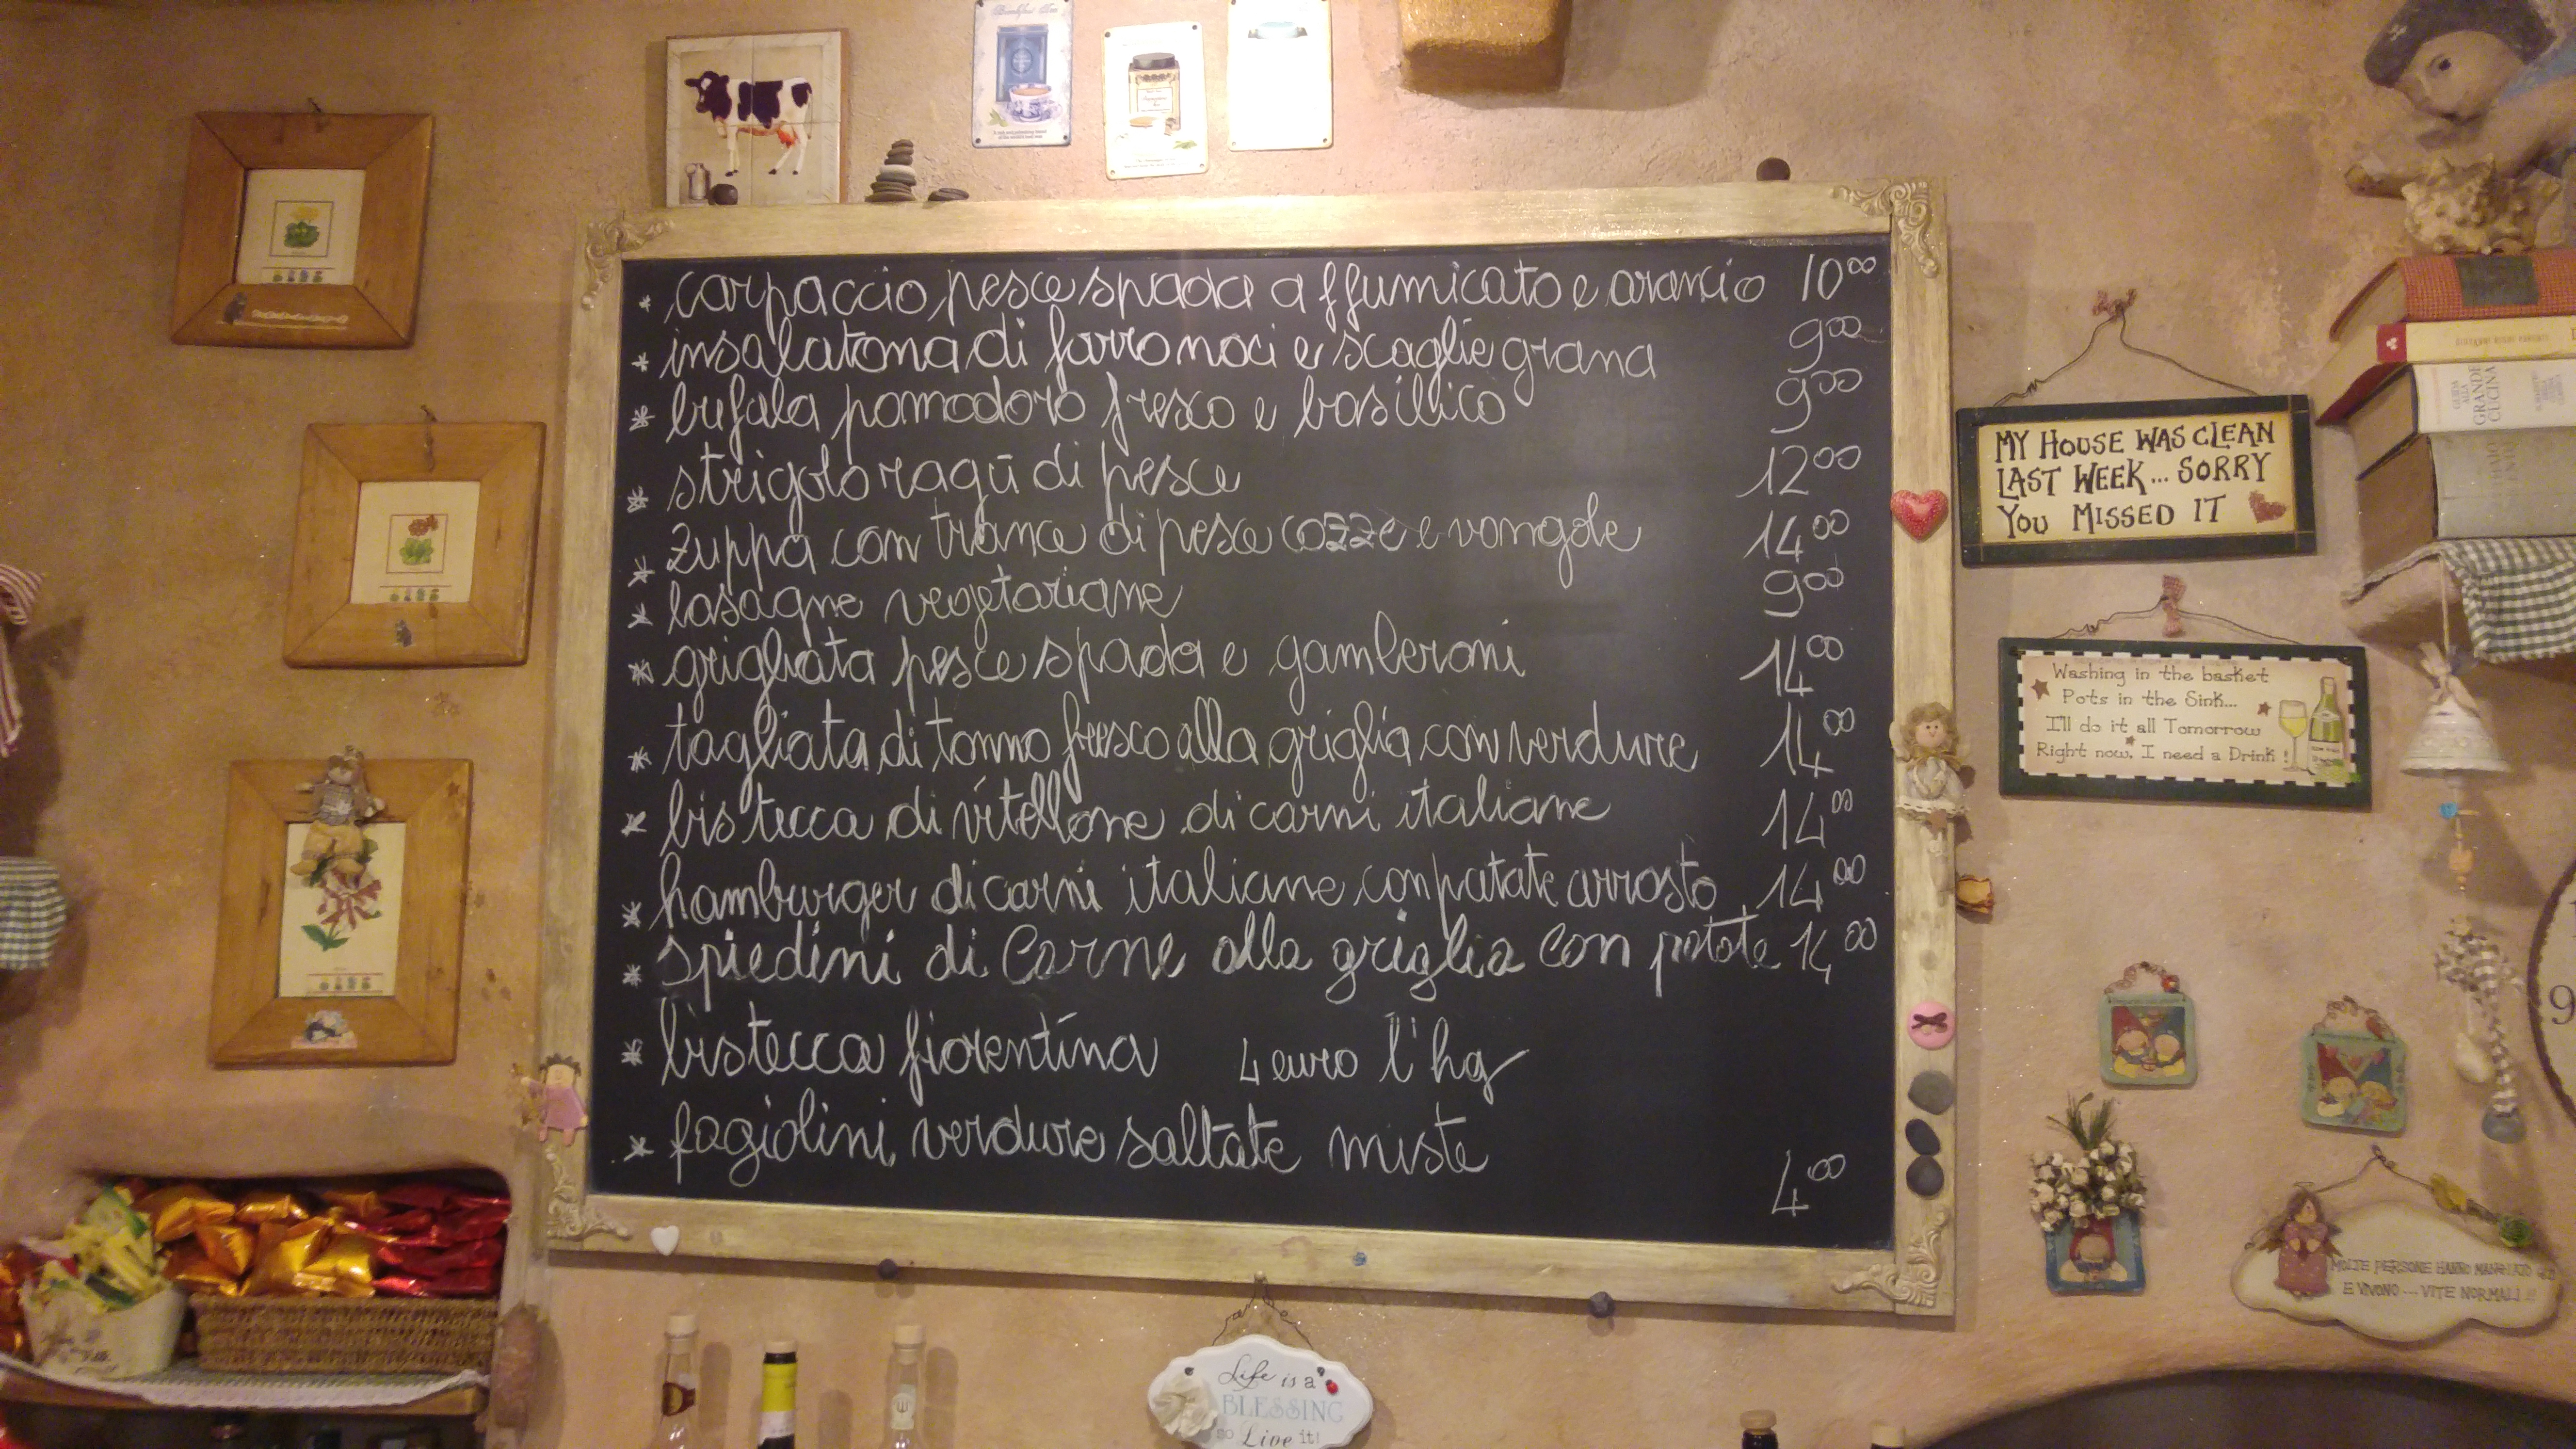 Breakfast Tea
* carpaccio pesce spada affumicato e arancio 10⁰⁰
* insalatona di farro noci e scaglie grana 9⁰⁰
* bufala pomodoro fresco e basilico 9⁰⁰
* strigolo ragū di pesce 12⁰⁰
* zuppa con trance di pesce cozze e vongole 14⁰⁰
* lasagne vegetariane 9⁰⁰
* grigliata pesce spada e gamberoni 14⁰⁰
* tagliata di tonno fresco alla griglia con verdure 14⁰⁰
* bistecca di vitellone di carni italiane 14⁰⁰
* hamburger di carni italiane con patate arrosto 14⁰⁰
* spiedini di Carne alla griglia con patate 14⁰⁰
* bistecca fiorentina 4 euro l'hg
* fagiolini, verdure saltate miste 4⁰⁰
GRANDE
CUCINA
MY HOUSE WAS CLEAN
LAST WEEK... SORRY
YOU MISSED IT
Washing in the basket
Pots in the Sink...
I'll do it all Tomorrow
Right now, I need a Drink!
9
MOLTE PERSONE HANNO MANGIATO QUI
E VIVONO... VITE NORMALI!!
Life is a
BLESSING
so Live it!